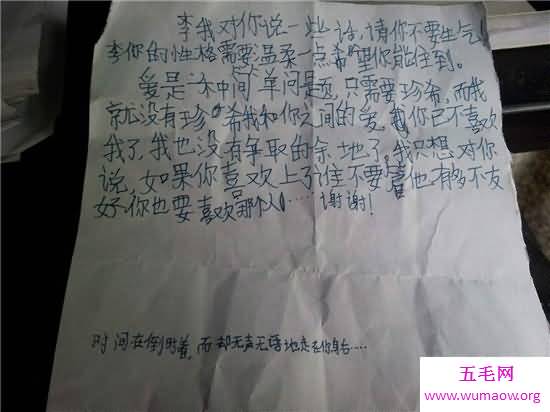 李我对你说一些话,请你不要生气
李你的性格需要温柔一点希望你能住到。
爱是一种中间单问是项,只需要珍希,而我
就没有珍希我和你之间的爱,你已不喜欢
我了,我也没有争取的余地了,我只想对你
说,如果你喜欢上了谁不要管他有多不友
好,你也要喜欢那个人……谢谢!
时间在倒时着,而却无声无语地走在你身台....
五毛网
www.wumaow.org